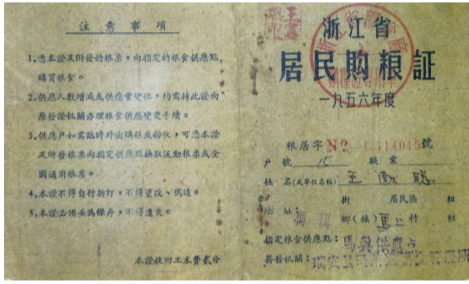 注意事項
1.憑本證及附發的粮票，向指定的粮食供應點
購買粮食。
2.供應人数增減或供應量變化，均需持此證向
原發證機關办理粮食供應變更手續。
3.供應户如需臨時外出購粮或粉伙，可憑本證
及所發粮票向指定供應點換取流動粮票或全
國通用粮票。
4.本證不得自行拆訂，不得塗改、偽造。
5.本證必須妥爲保存，不得遺失。
本證收回工本費貳分
浙江省
居民購粮証
一九五六年度
粮居字 №
號
户號 15 職業
姓名(或單位名称) 王
街 居民區 組
地址:
鄉(鎮) 村 組
指定粮食供應點: 馬興供應点
簽發机關: